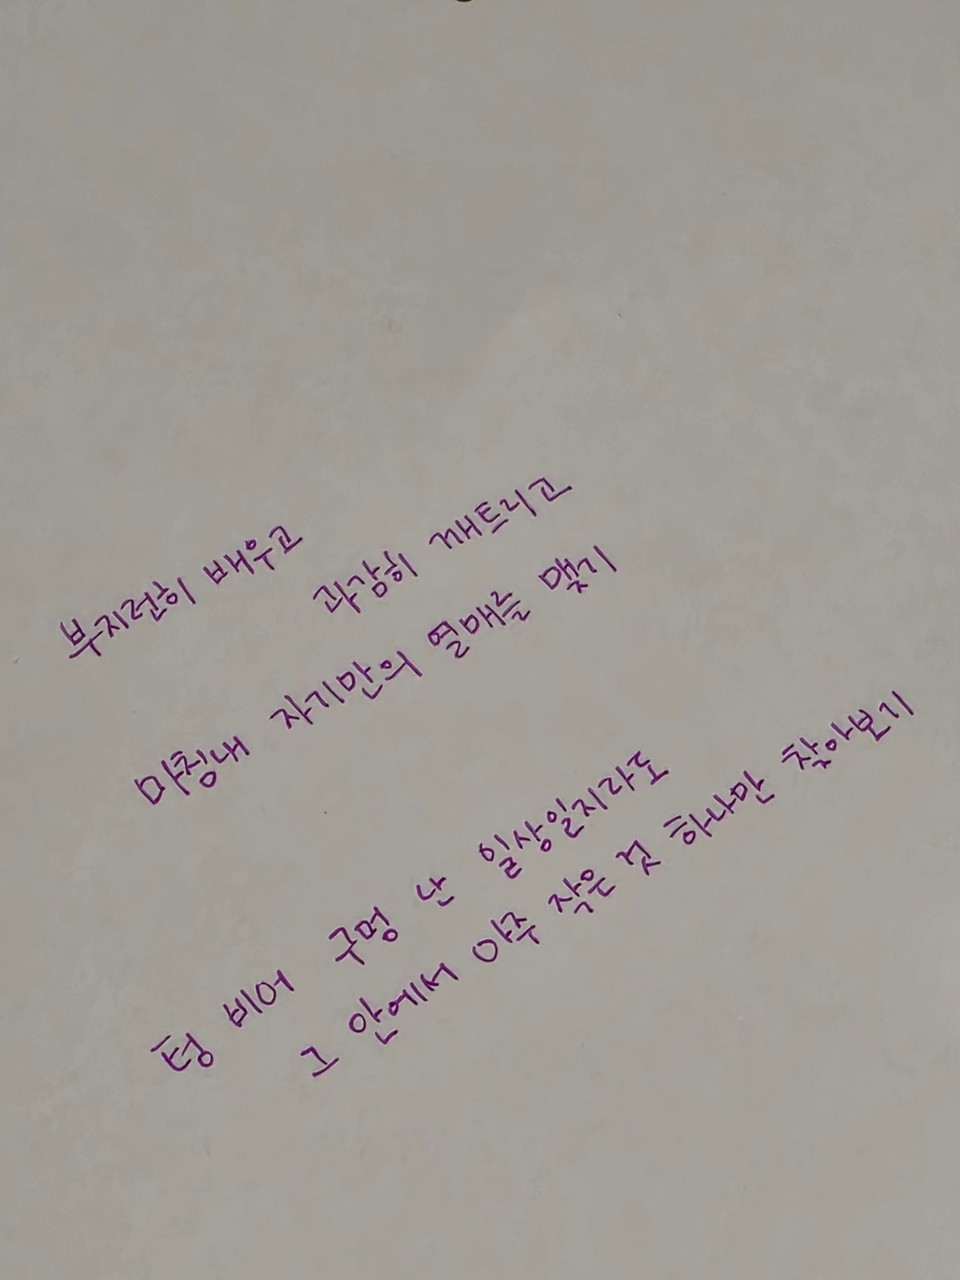 부지런히 배우고
과감히 깨트리고
마침내 자기만의 열매를 맺기
텅 비어 구멍 난 일상일지라도
그 안에서 아주 작은 것 하나만 찾아보기